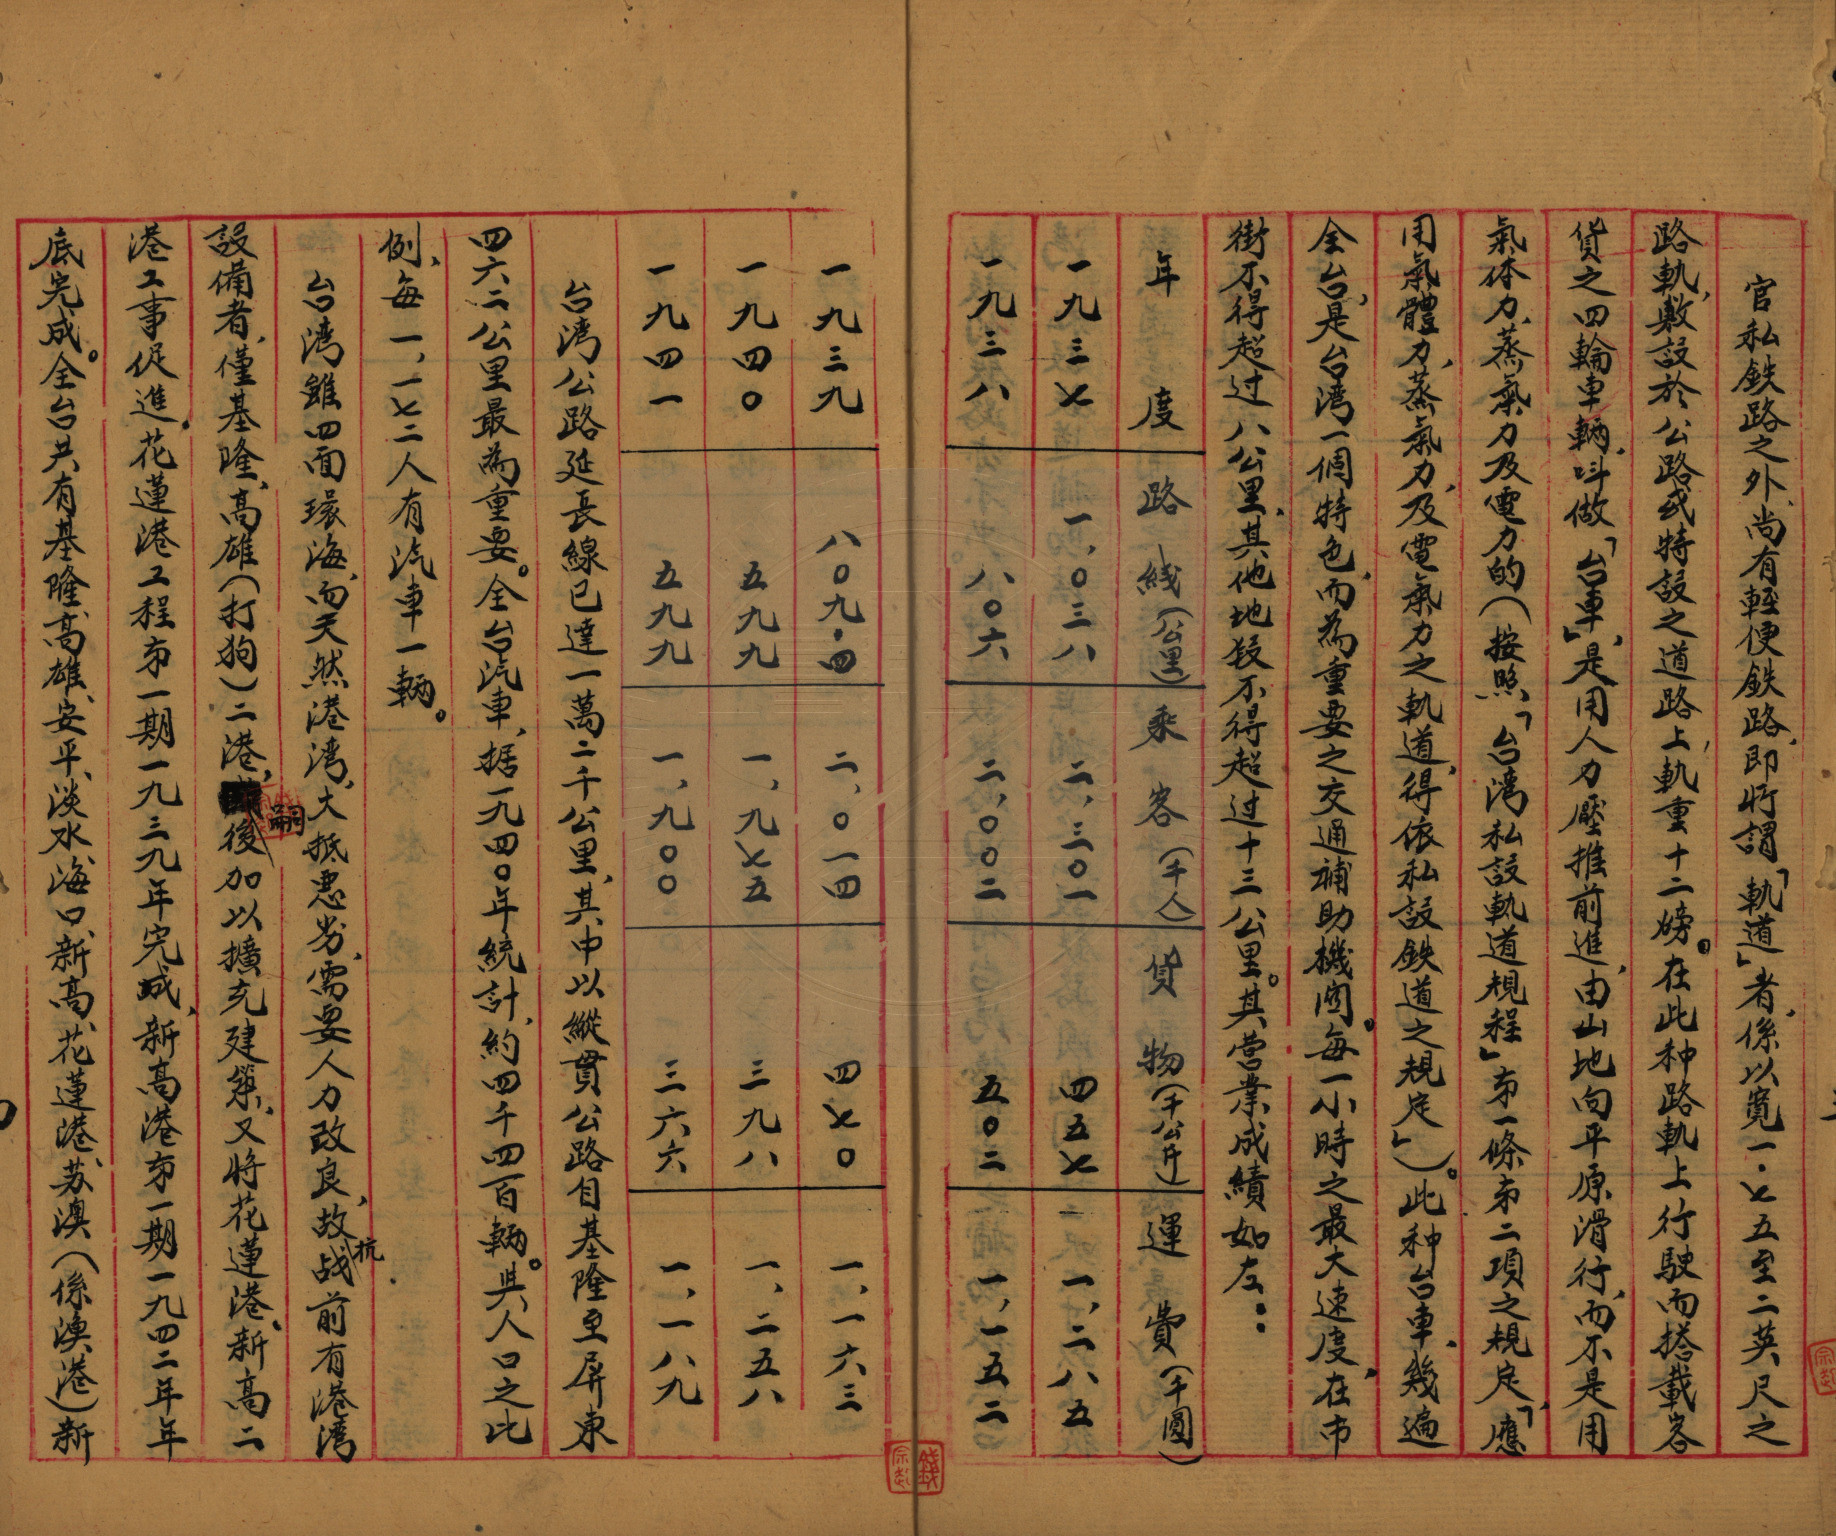 官私鉄路之外、尚有輕便鉄路、即所謂「軌道」者、係以寬一・七五至二英尺之
路軌、敷設於公路或特設之道路上、軌重十二磅。在此种路軌上行駛而搭載客
貨之四輪車輛、叫做「台車」、是用人力壓推前進、由山地向平原滑行、而不是用
氣体力、蒸氣力及電力的(按照、「台湾私設軌道規程」第一條第二項之規定、「應
用氣體力、蒸氣力、及電氣力之軌道、得依私設鉄道之規定」)。此种台車、幾遍
全台、是台湾一個特色、而為重要之交通補助機関。每一小時之最大速度、在市
街不得超过八公里、其他地段不得超过十三公里。其營業成績如左:
年度 路線(公里) 乘客(千人) 貨物(千公斤) 運費(千圓)
一九三七 一、〇三八 二、三〇一 四五七 一、二八五
一九三八 八〇六 二、〇〇二 五〇二 一、一五二
一九三九 八〇九・四 二、〇一四 四七〇 一、一六三
一九四〇 五九九 一、九七五 三九八 一、二五八
一九四一 五九九 一、九〇〇 三六六 一、一八九
台湾公路延長線已達一萬二千公里、其中以縱貫公路自基隆至屏東
四六二公里最為重要。全台汽車、据一九四〇年統計、約四千四百輛。與人口之比
例、每一、一七二人有汽車一輛。
台湾雖四面環海、而天然港湾、大抵悪劣、需要人力改良、故抗战前有港湾
設備者、僅基隆、高雄(打狗)二港、嗣後加以擴充建築、又將花蓮港、新高二
港工事促進。花蓮港工程第一期一九三九年完成、新高港第一期一九四二年年
底完成。全台共有基隆、高雄、安平、淡水、海口、新高、花蓮港、苏澳(係漁港)新
宗起
錢